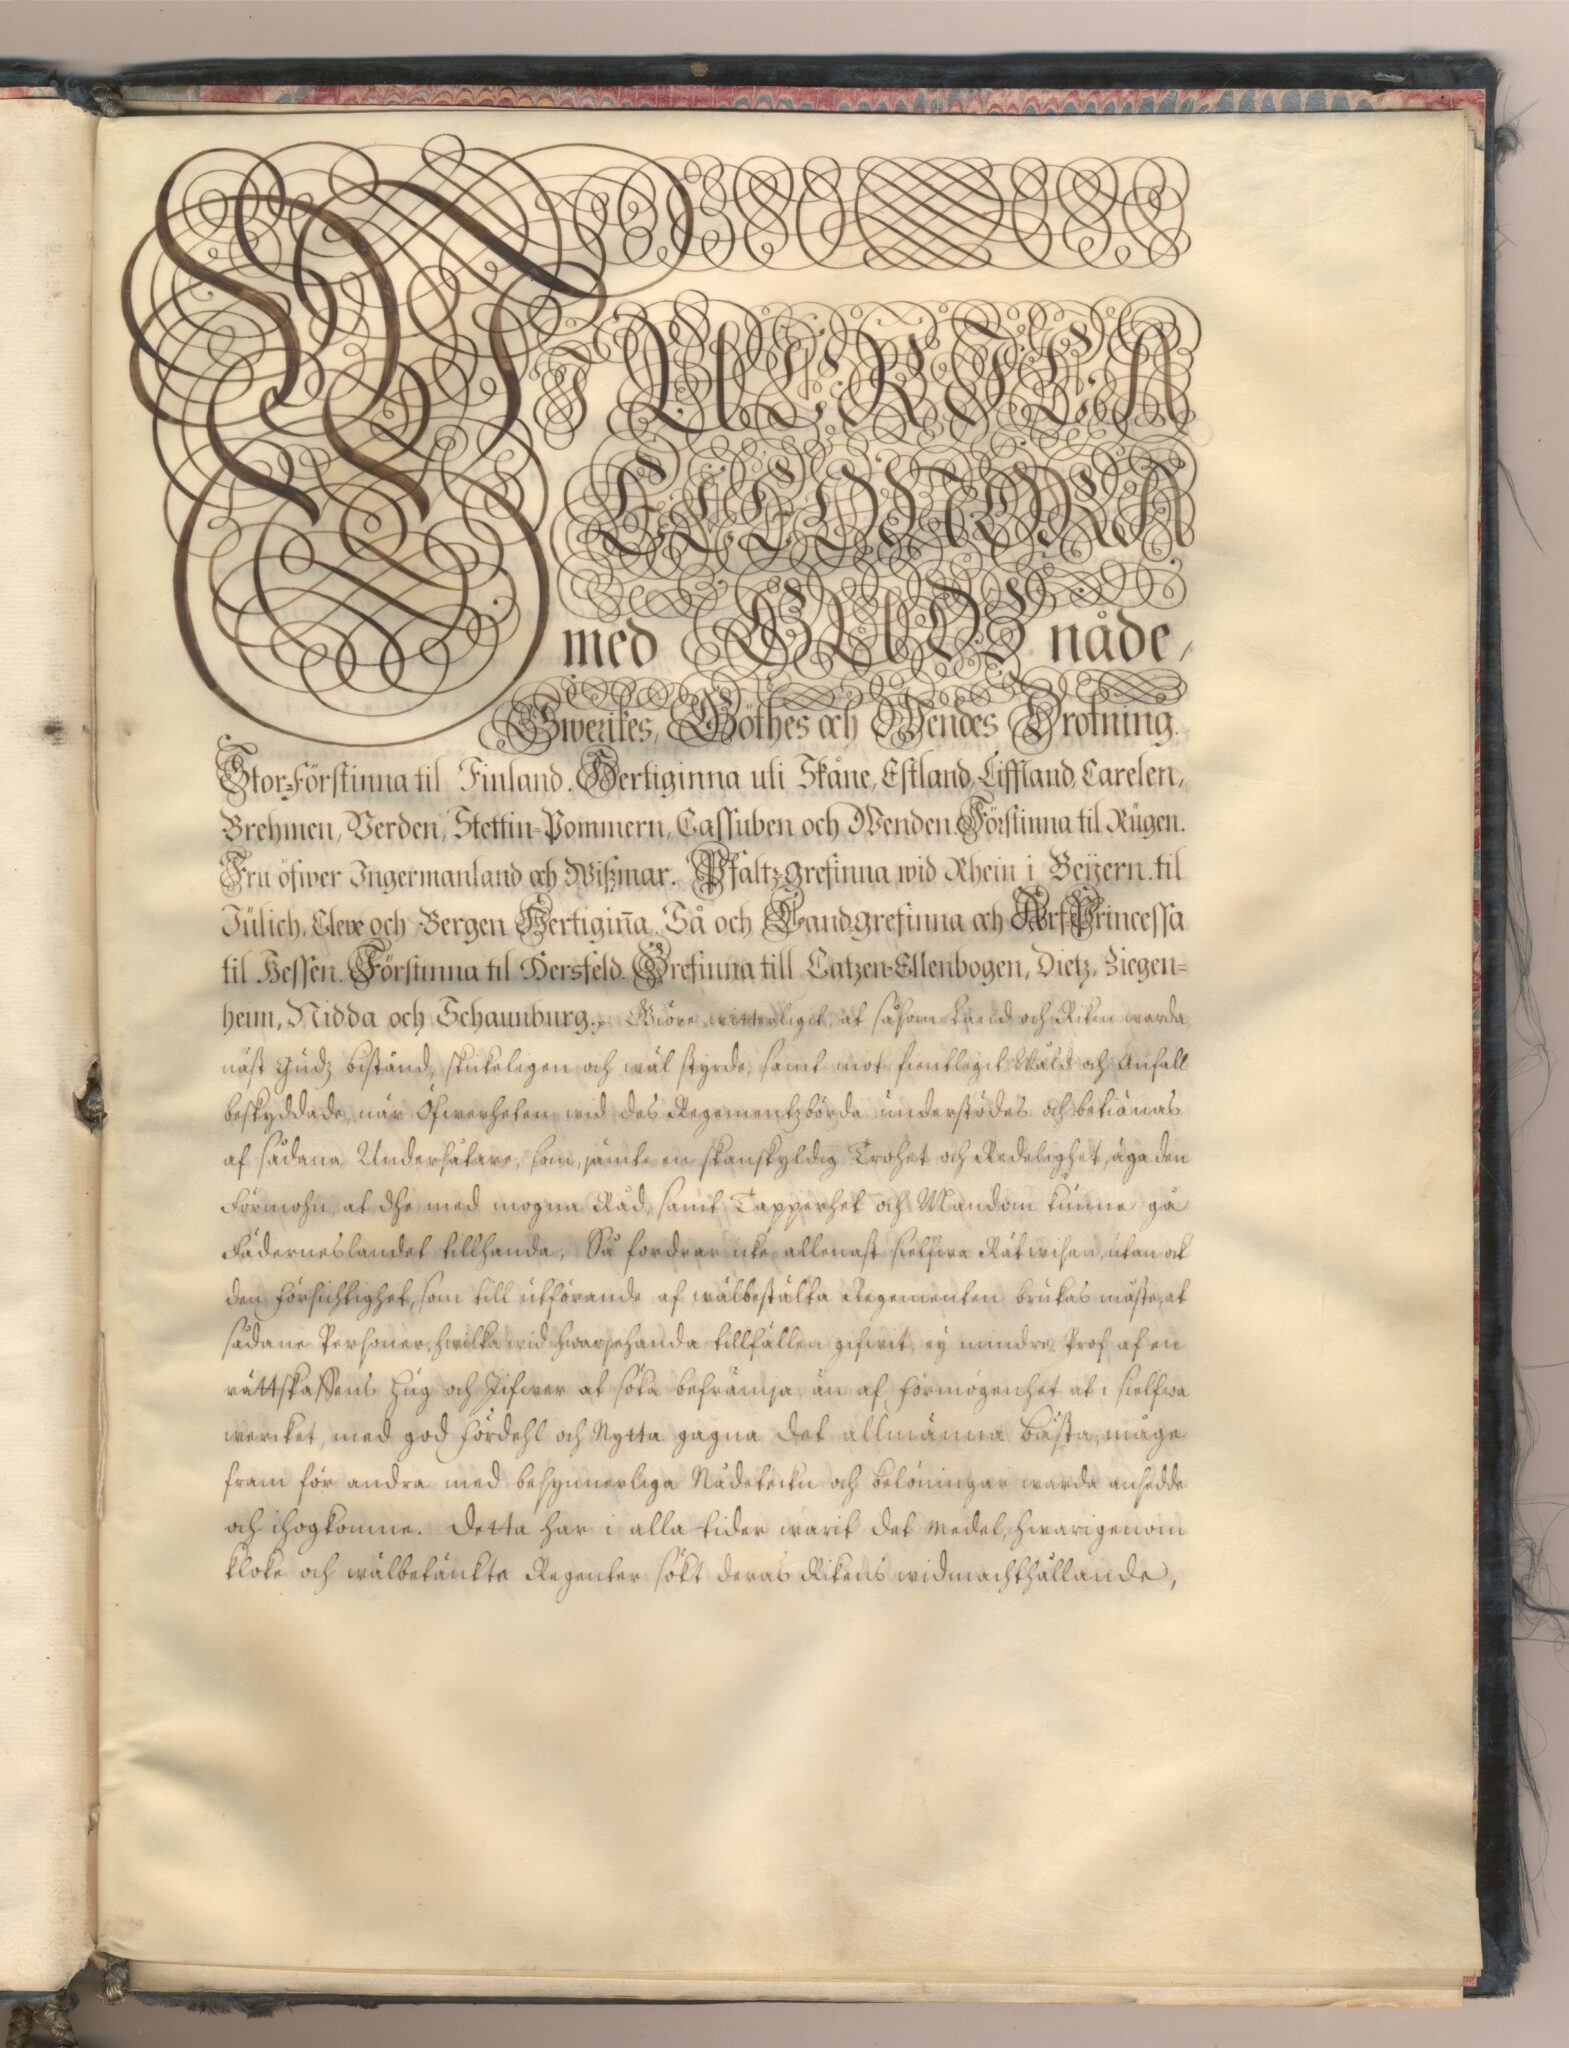 Wi
ULRICA
ELEONORA
med GUDZ nåde,
Swerikes, Göthes och Wendes Drotning.
Stor-Förstinna til Finland. Hertiginna uti Skåne, Estland, Liffland, Carelen,
Brehmen, Verden, Stettin-Pommern, Cassuben och Wenden. Förstinna til Rügen.
Fru öfwer Ingermanland och Wißmar. Pfaltz-Grefinna wid Rhein i Beÿern. til
Jülich, Cleve och Bergen Hertigiña. Så och Landgrefinna och Arf-Princessa
til Hessen. Förstinna til Hersfeld. Grefinna till Catzen-Ellenbogen, Dietz, Ziegen=
heim, Nidda och Schaunburg. Giöre witterligit, at såsom Land och Riken warda,
näst Gudz biständ, skickeligen och wäl styrde, samt mot fientligit Wåld och Anfall
beskyddade, när Öfwerheten wid des Regementzbörda understödes och betiänas
af sådana Undersåtare, som, jämte en skyldig Trohet och Redelighet, äga den
Förmohn, at dhe med mogna Råd, samt Tapperhet och Mandom kunne gå
Fäderneslandet tillhanda; Så fordrar icke allenast sielfwa Rätwisan, utan ock
den försichtighet, som till utförande af wälbestälta Regementen brukas måste, at
sådane Personer, hwilka wid hwarjehanda tillfällen gifwit, ey mindre Prof af en
rättskaffens Hug och Ifwer at söka befrämja, än af förmögenhet at i sielfwa
wercket, med god fördehl och Nytta gagna det allmänna bästa, måge
fram för andra med besynnerliga Nådetecken och belöningar warda ansedde
och ihogkomne. Detta har i alla tider warit det medel, hwarigenom
kloke och wälbetänckte Regenter sökt deras Rikens widmachthållande,